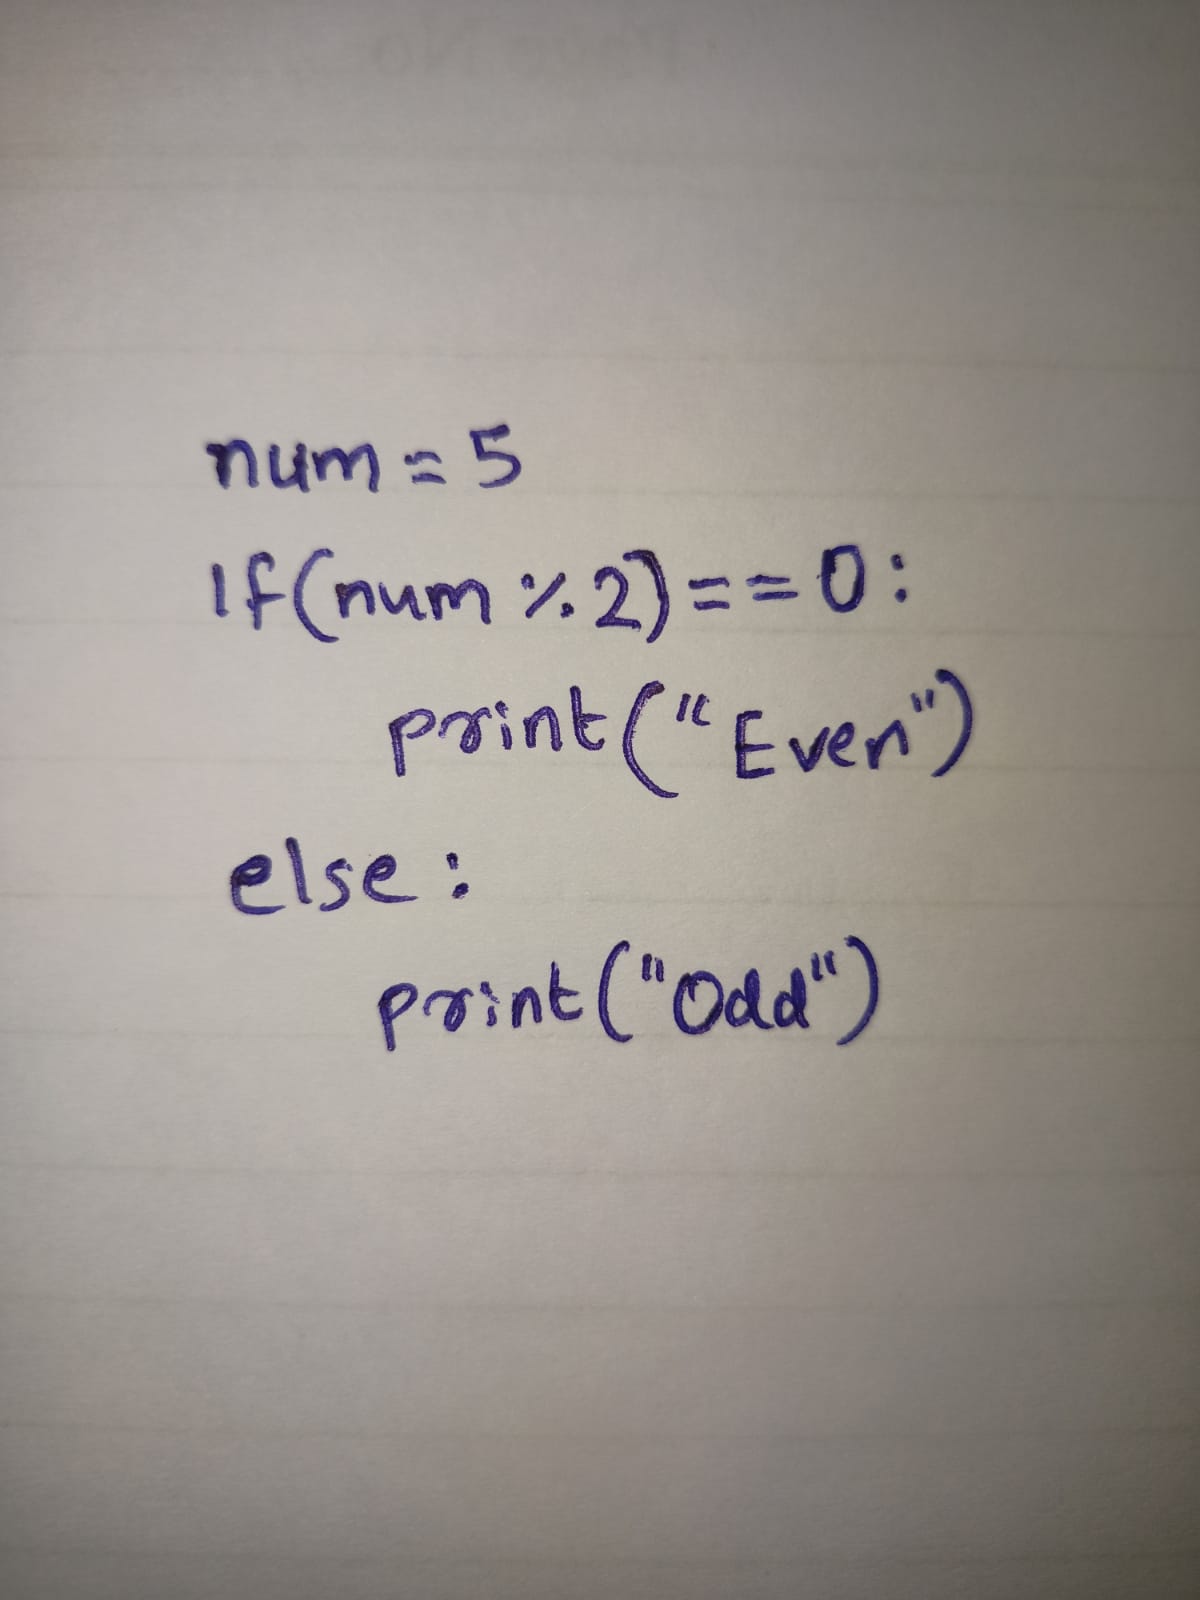 num = 5
if(num % 2) == 0:
print("Even")
else:
print("Odd")